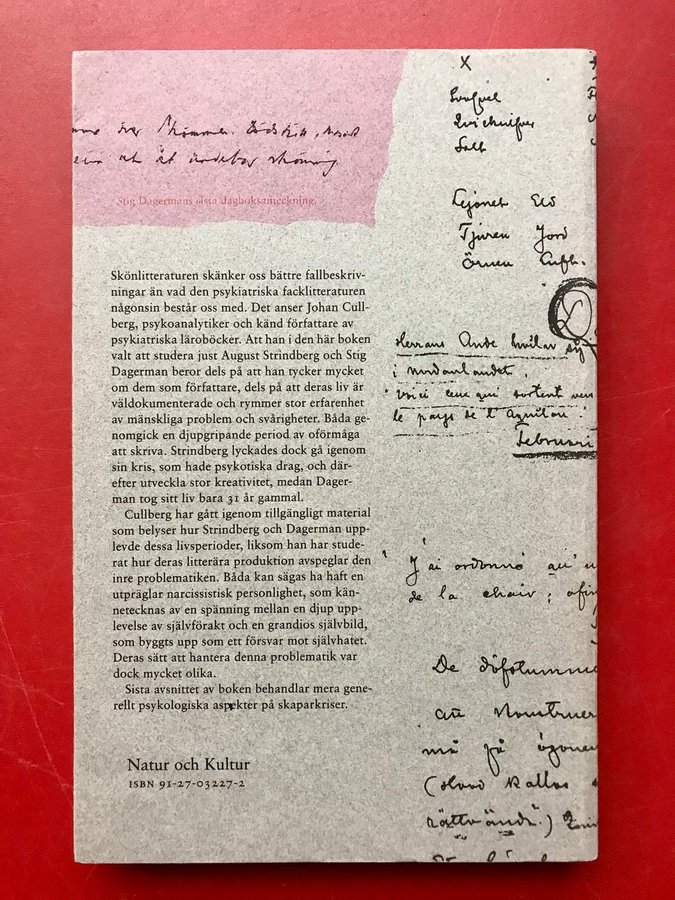 Stig Dagermans sista dagboksanteckning.
Skönlitteraturen skänker oss bättre fallbeskriv-
ningar än vad den psykiatriska facklitteraturen
någonsin består oss med. Det anser Johan Cull-
berg, psykoanalytiker och känd författare av
psykiatriska läroböcker. Att han i den här boken
valt att studera just August Strindberg och Stig
Dagerman beror dels på att han tycker mycket
om dem som författare, dels på att deras liv är
väldokumenterade och rymmer stor erfarenhet
av mänskliga problem och svårigheter. Båda ge-
nomgick en djupgripande period av oförmåga
att skriva. Strindberg lyckades dock gå igenom
sin kris, som hade psykotiska drag, och där-
efter utveckla stor kreativitet, medan Dager-
man tog sitt liv bara 31 år gammal.
Cullberg har gått igenom tillgängligt material
som belyser hur Strindberg och Dagerman upp-
levde dessa livsperioder, liksom han har stude-
rat hur deras litterära produktion avspeglar den
inre problematiken. Båda kan sägas ha haft en
utpräglar narcissistisk personlighet, som kän-
netecknas av en spänning mellan en djup upp-
levelse av självförakt och en grandios självbild,
som byggts upp som ett försvar mot självhatet.
Deras sätt att hantera denna problematik var
dock mycket olika.
Sista avsnittet av boken behandlar mera gene-
rellt psykologiska aspekter på skaparkriser.
Natur och Kultur
ISBN 91-27-03227-2
X
Svafvel
Qvicksilfver
Salt
Lejonet Eld
Tjuren Jord
Örnen Luft.
Herrans Ande hvilar
i nordanlandet.
voici ceux qui sortent
le pays de l'Aquilon
Februari
"J'ai ordonné
de la chair; afin
De döfstumma
må få ögonen
(hvad kallas
rättvända.")